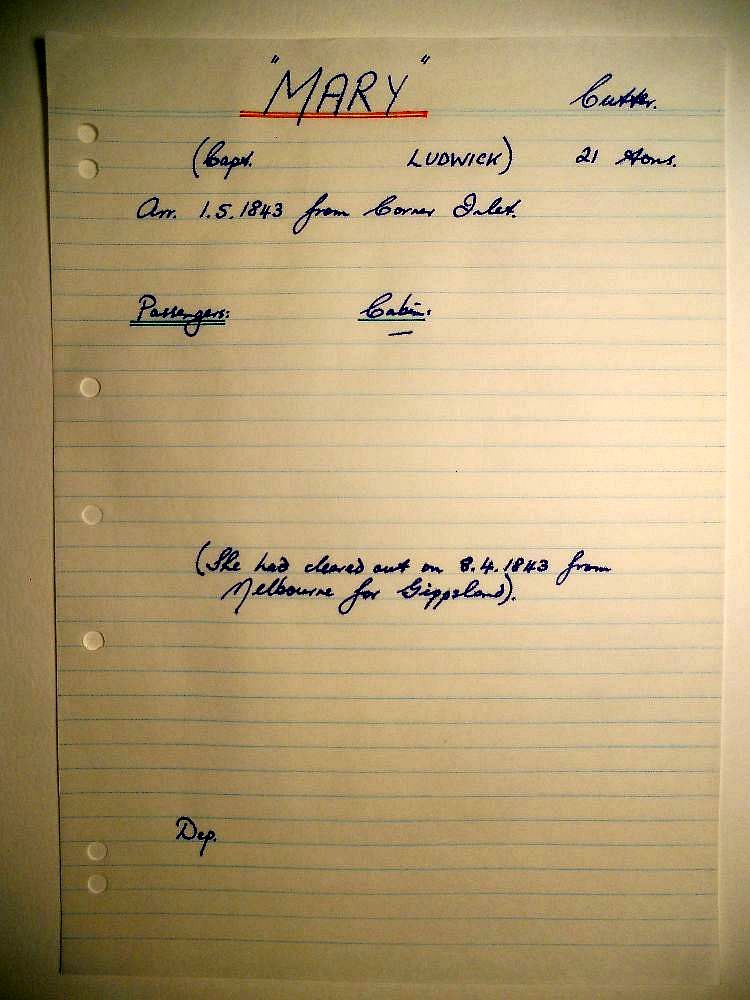 "MARY"
Cutter.
(Capt. LUDWICK) 21 tons.
Arr. 1.5.1843 from Corner Inlet.
Passengers: Cabin:
—
(She had cleared out on 8.4.1843 from
Melbourne for Gippsland).
Dep.